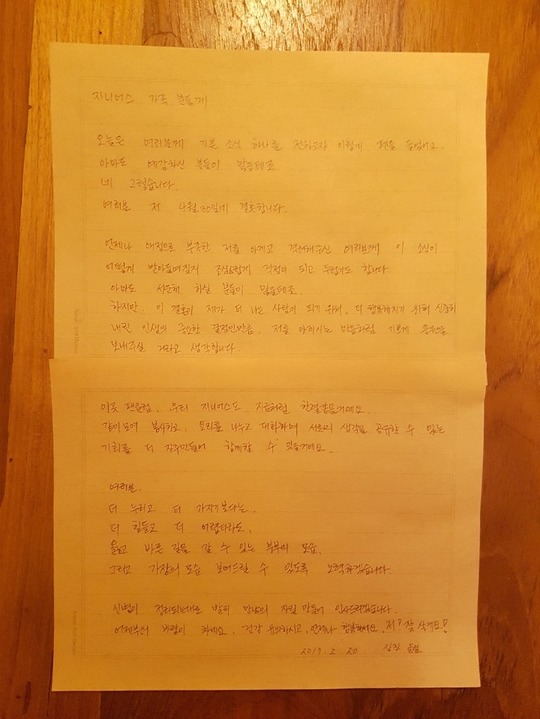 지니어스 가족 분들께
오늘은 여러분께 기쁜 소식 하나를 전하고자 이렇게 펜을 들었어요.
아마도 예감하신 분들이 많을테죠
네 그렇습니다.
여러분 저 4월 30일에 결혼합니다.
언제나 애정으로 부족한 저를 아끼고 격려해주신 여러분께 이 소식이
어떻게 받아들여질지 조심스럽게 걱정이 되고 두렵기도 합니다
아마도 서운해 하실 분들이 많을테죠.
하지만, 이 결혼이 제가 더 나은 사람이 되기 위해, 더 행복해지기 위해 신중히
내린 인생의 중요한 결정인만큼, 저를 아끼시는 마음처럼 기쁘게 응원을
보내주실 거라고 생각합니다.
우리 지니어스도 지금처럼 한결같을거예요.
같이 모여 봉사하고, 온기를 나누고 대화하며 서로의 생각을 공유할 수 있는
기회를 더 자주 만들어 함께할 수 있을거예요.
여러분.
더 누리고 더 가지기보다는.
더 힘들고 더 어렵더라도.
옳고 바른 길을 갈 수 있는 부부의 모습.
그리고 가장의 모습 보여드릴 수 있도록 노력하겠습니다.
정리되는대로 빨리 만남의 자릴 만들어 인사드리겠습니다.
바람이 차네요. 건강 유의하시고, 언제나 행복하세요. 저? 잘 살게요!
2017. 2. 20